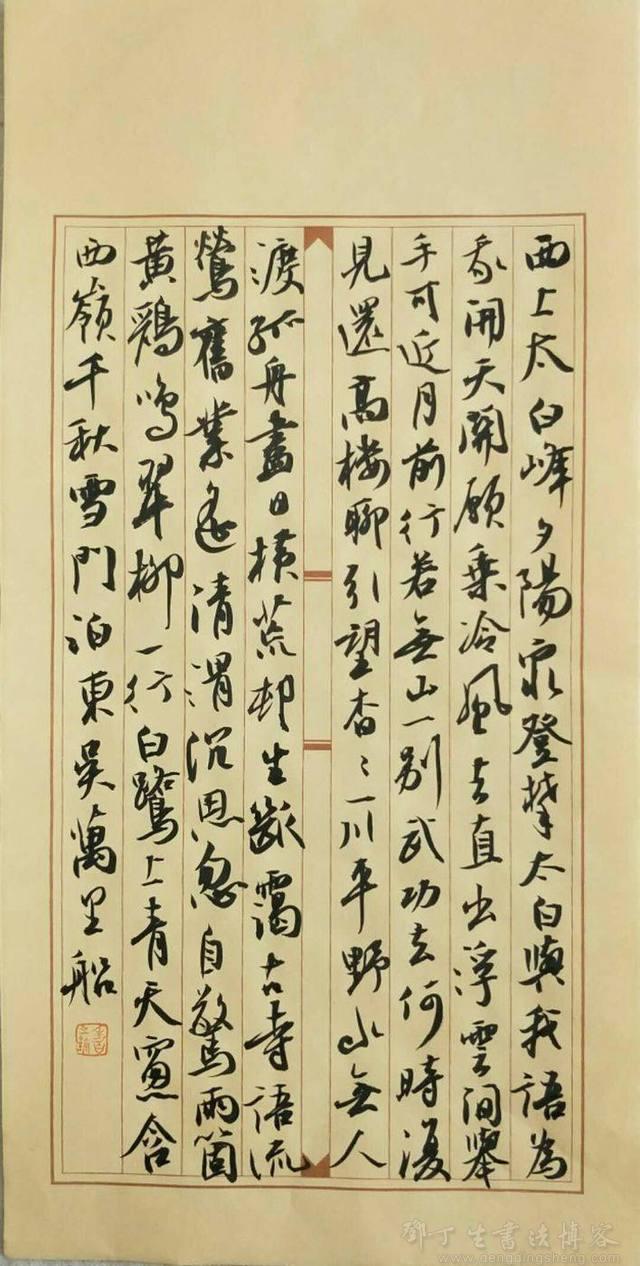 西上太白峰夕陽窮登攀太白與我語為
我開天關願乘冷風去直出浮雲間舉
手可近月前行若無山一別武功去何時復
見還高樓聊引望杳〻一川平野水無人
渡孤舟盡日橫荒村生斷靄古寺語流
鶯舊業遙清渭沉思忽自驚兩箇
黃鸝鳴翠柳一行白鷺上青天窗含
西嶺千秋雪門泊東吳萬里船
鄧丁生書法博客